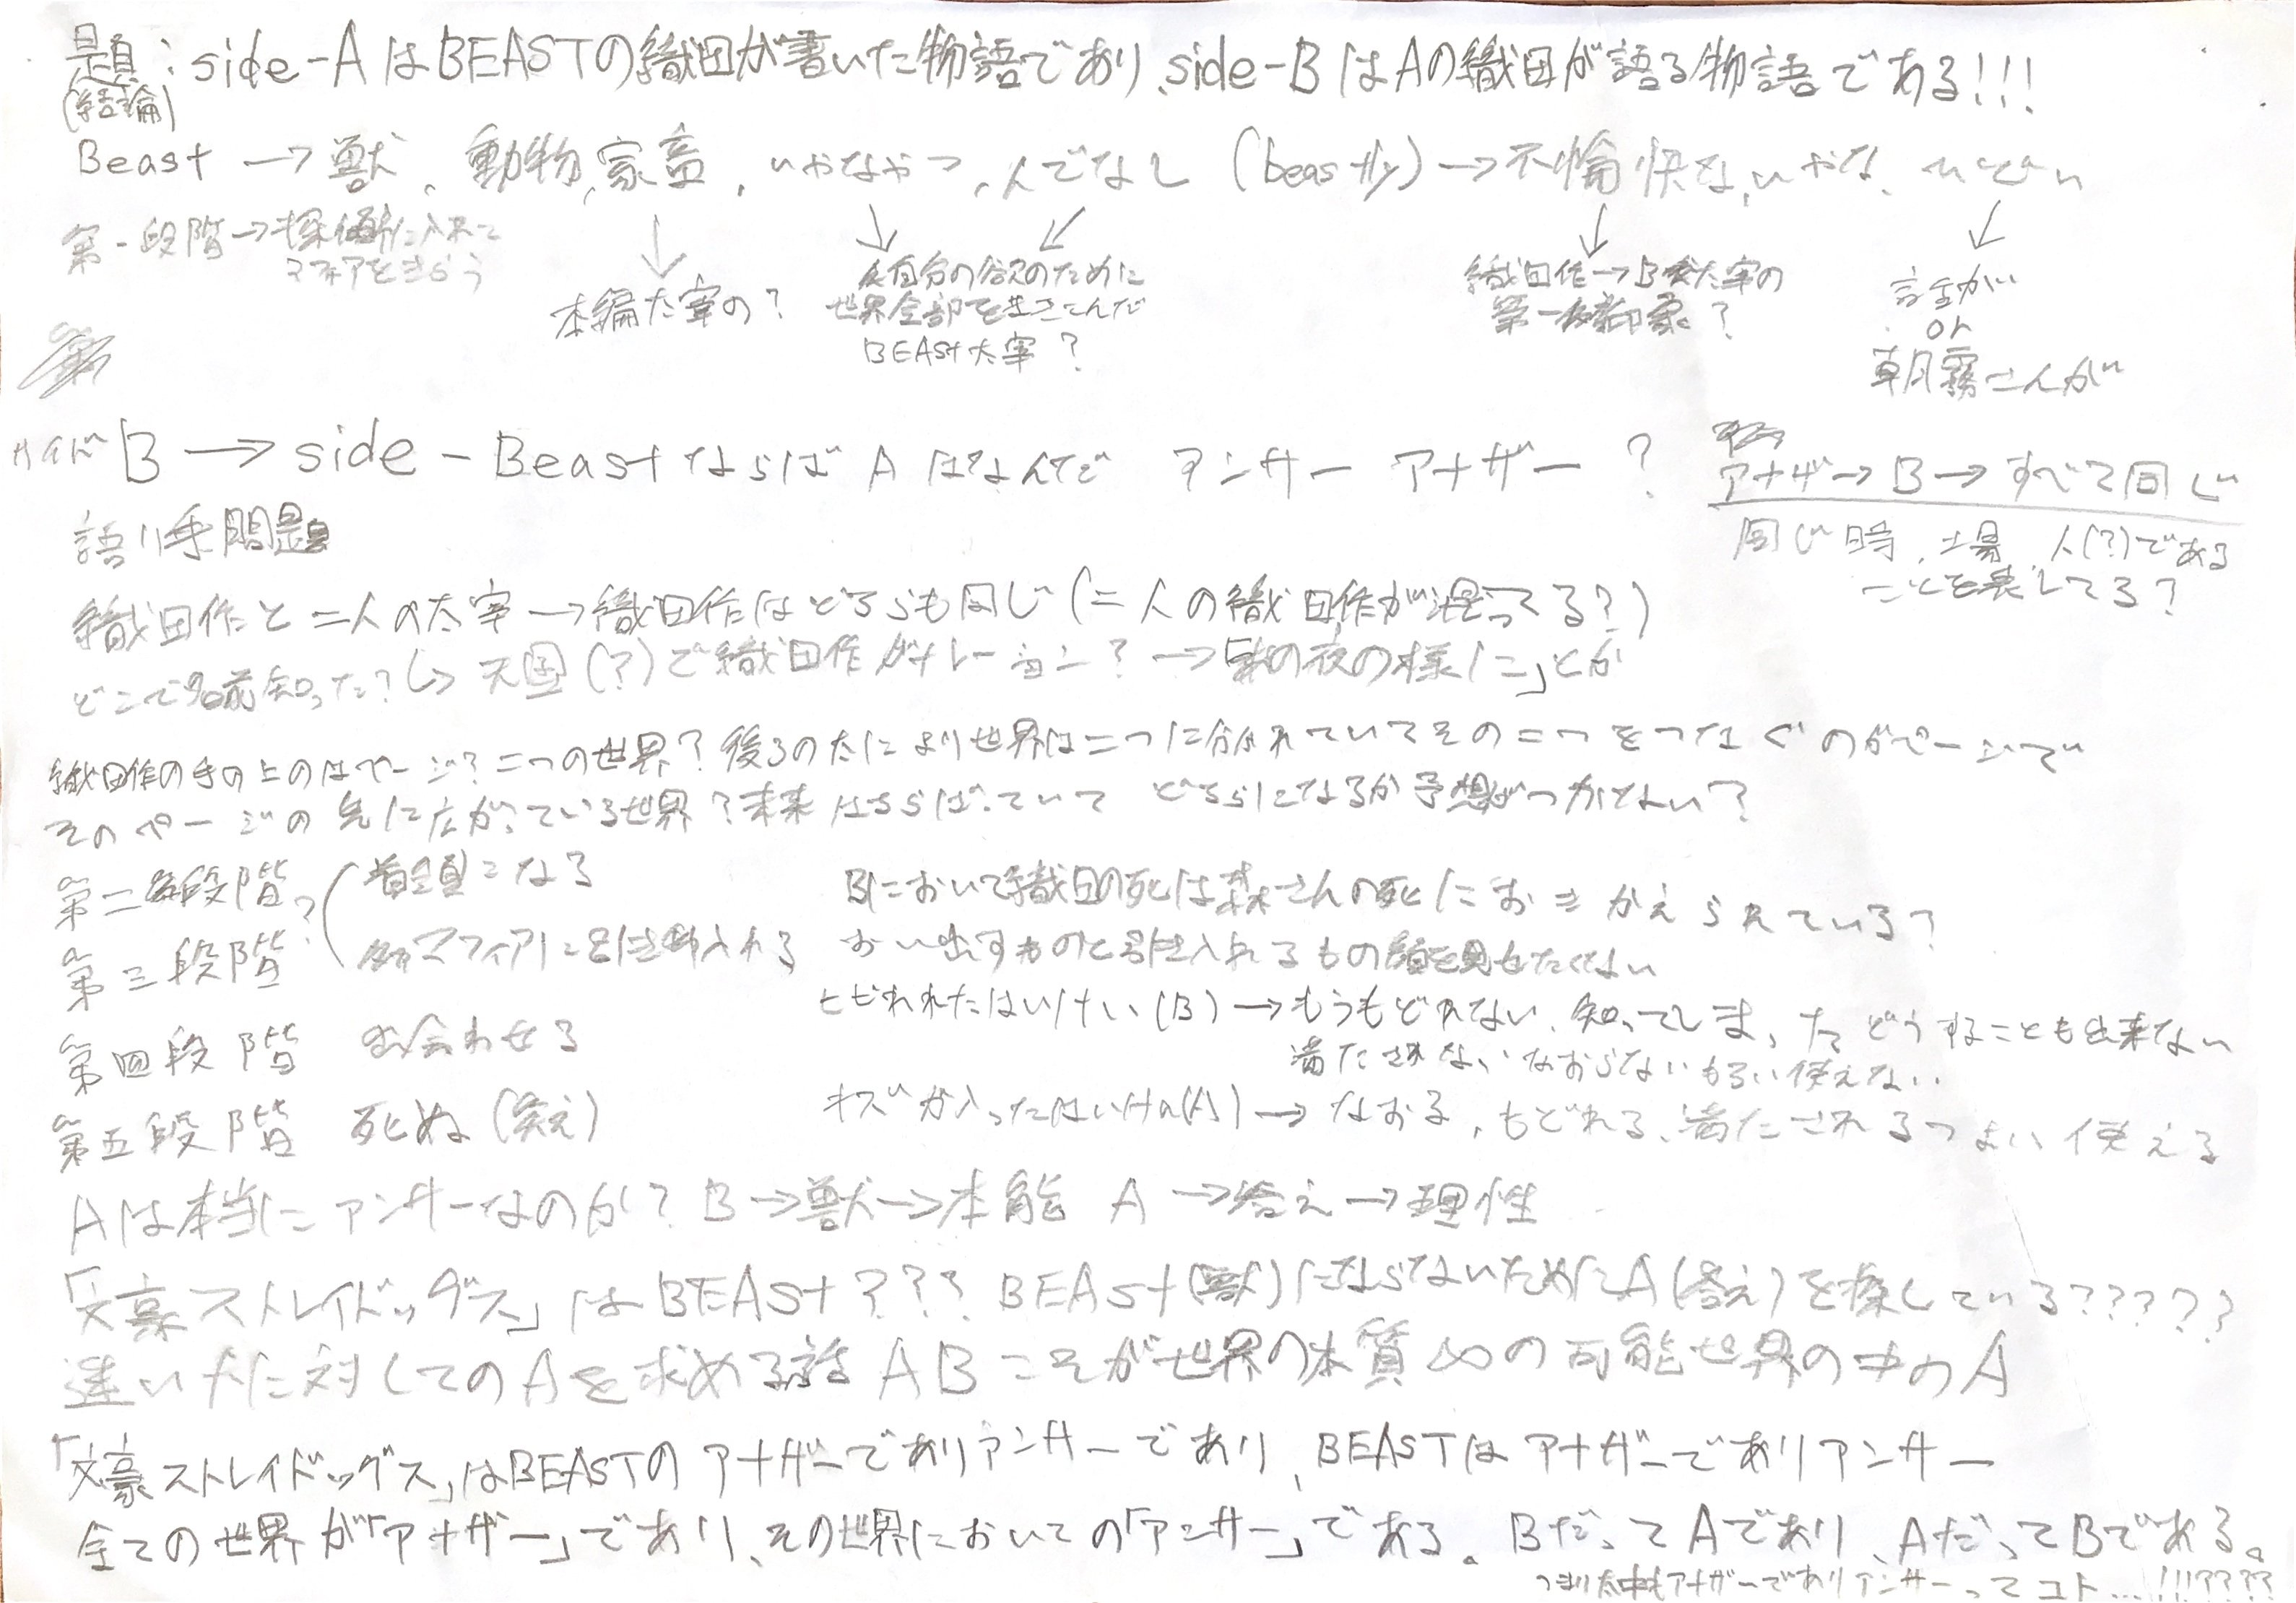 題:side-AはBEASTの織田が書いた物語であり、side-BはAの織田が語る物語である!!!
(結論)
Beast→獣、動物、家畜、いやなやつ、人でなし(beastly)→不愉快な、いやな、ひどい
第一段階→探偵社に入れてマフィアをきらう
本編太宰の?
自分の欲のために
世界全部を巻きこんだ
BEAST太宰?
織田作→B太宰の
第一印象?
話が
or
朝霧さんが
サイドB→side-BeastならばAはなんで アンサー アナザー?
アナザ→B→すべて同じ
同じ時、場、人(?)である
ことを表してる?
語り手問題
織田作と二人の太宰→織田作はどちらも同じ(二人の織田作が混ざってる?)
どこで名前知った?↳天国(?)で織田作がナレーション?→「の夜の様に」とか
織田作の手の上のはページ?二つの世界?後ろのたにより世界は二つに分れていてその二つをつなぐのがページで
そのページの先に広がっている世界?未来はちらばっていて どちらになるか予想がつかない?
第二段階
第三段階
?
首領になる
マフィアに引き入れる
第四段階 出会わせる
第五段階 死ぬ(答え)
Bにおいて織田の死は森さんの死におきかえられている?
おい出すものと引き入れるもの顔を見せたくない
ヒビわれたはいけい(B)→もうもどれない、知ってしまったどうすることも出来ない
満たされない、なおらないもろい使えない
キズが入ったはいけい(A)→なおる、もどれる、満たされるつよい使える
Aは本当にアンサーなのか? B→獣→本能 A→答え→理性
「文豪ストレイドッグス」はBEAST??? BEAST(獣)にならないためにA(答え)を探している?????
迷い犬に対してのAを求める話 ABこそが世界の本質 ∞の可能世界の中のA
「文豪ストレイドッグス」はBEASTのアナザーでありアンサーであり、BEASTはアナザーでありアンサー
全ての世界が「アナザー」であり、その世界においての「アンサー」である。BだってAであり、AだってBである。
つまり太中もアナザーでありアンサーってコト...!!!????